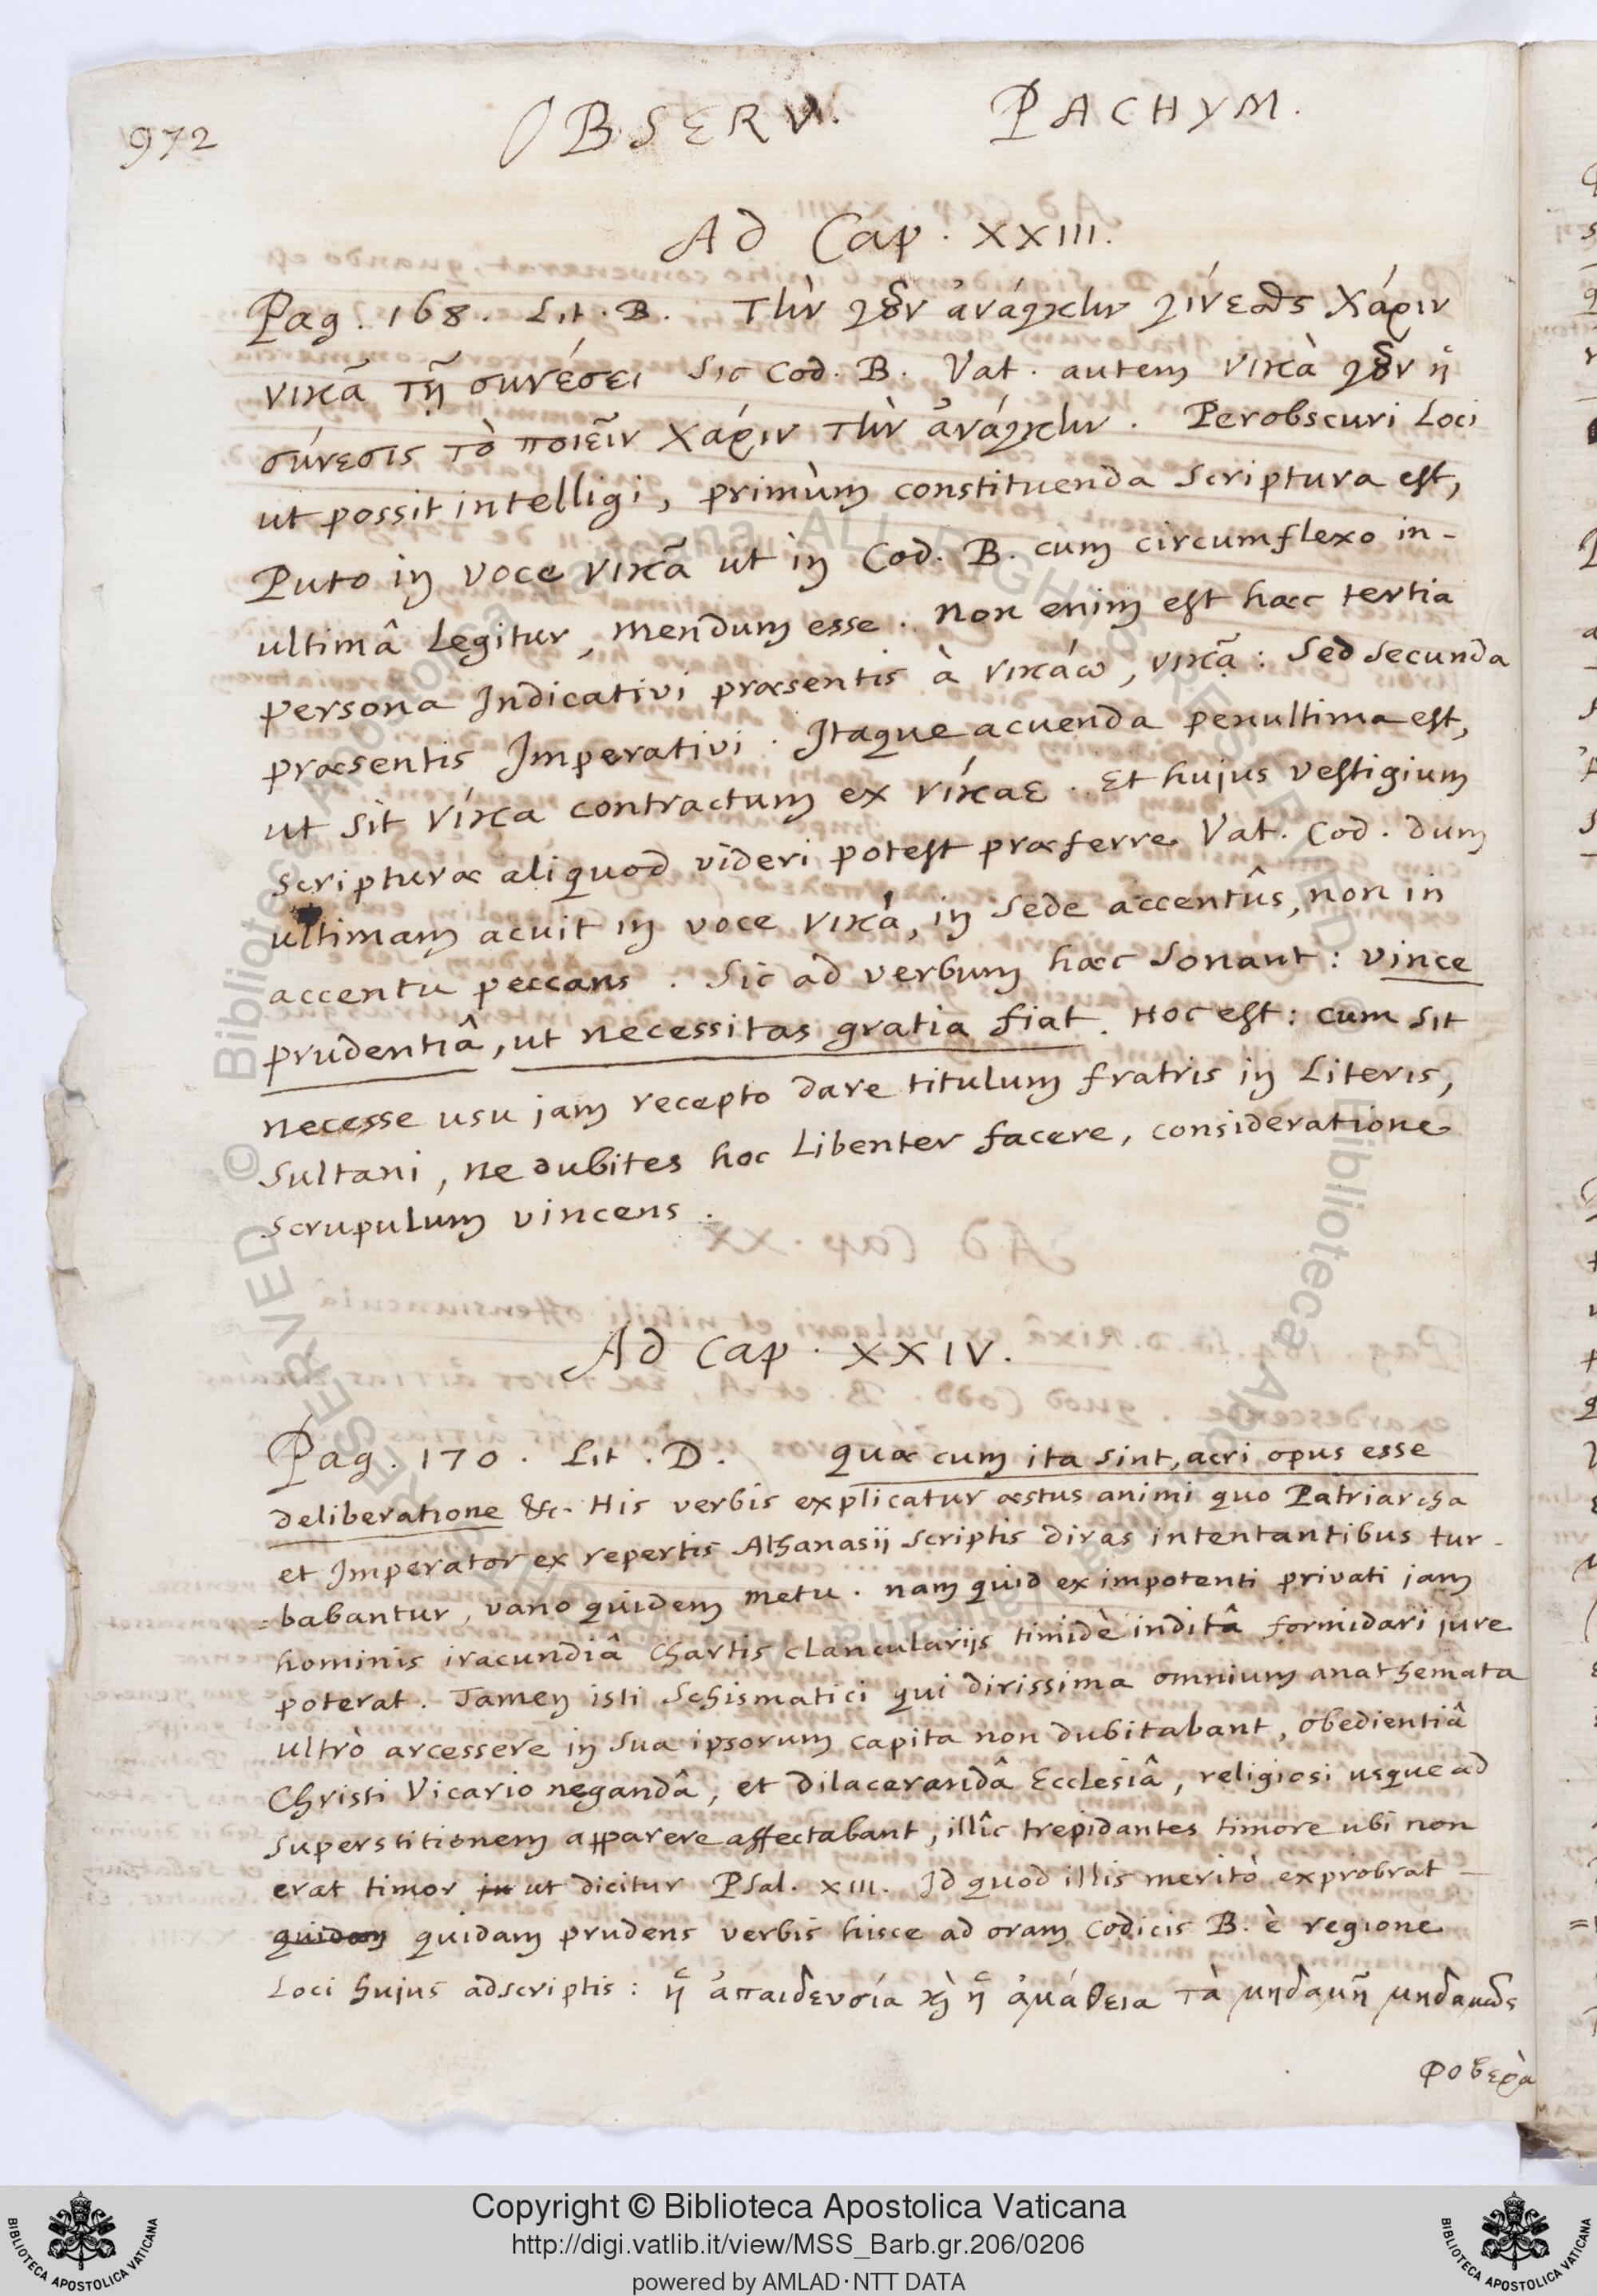 972
OBSERV. PACHYM.
Ad Cap. XXIII.
Pag. 168. Lit. B. τὴν γοῦν ἀνάγκην γίνεσθαι χάριν
νικᾶ τῇ συνέσει Sic Cod. B. Vat. autem νικὰ γοῦν ἡ
σύνεσις τὸ ποιεῖν χάριν τὴν ἀνάγκην. Perobscuri Loci
ut possit intelligi, primùm constituenda Scriptura est,
Puto in voce νικᾶ ut in Cod. B. cum circumflexo in-
ultimâ Legitur, mendum esse. Non enim est hæc tertia
persona Indicativi præsentis à νικάω, νικᾷ: Sed Secunda
præsentis Imperativi. Itaque acuenda penultima est,
ut sit νίκα contractum ex νίκαε. Et hujus vestigium
Scripturæ aliquod videri potest præferre Vat. Cod. dum
ultimam acuit in voce νικά, in Sede accentûs, non in
accentu peccans. Sic ad verbum hæc Sonant: vince
prudentiâ, ut necessitas gratia fiat. Hoc est: cum sit
necesse usu jam recepto dare titulum fratris in Literis,
Sultani, ne dubites hoc Libenter facere, consideratione
Scrupulum vincens.
Ad Cap. XXIV.
Pag. 170. Lit. D. quæ cum ita sint, acri opus esse
deliberatione &c. His verbis explicatur æstus animi quo Patriarcha
et Imperator ex repertis Athanasij Scriptis diras intentantibus tur-
=babantur, vano quidem metu. nam quid ex impotenti privati jam
hominis iracundiâ Chartis clancularijs timidè inditâ formidari jure
poterat. Tamen isti Schismatici qui dirissima omnium anathemata
ultrò arcessere in Sua ipsorum capita non dubitabant, obedientiâ
Christi Vicario negandâ, et dilacerandâ Ecclesiâ, religiosi usque ad
superstitionem apparere affectabant, illîc trepidantes timore ubi non
erat timor in ut dicitur Psal. XIII. Id quod illis meritò exprobrat
quidam quidam prudens verbis hisce ad oram codicis B. è regione
Loci hujus adscriptis: ἡ ἀπαιδευσία καὶ ἡ ἀμάθεια τὰ μηδαμῆ μηδαμῶς
φοβερὰ
Copyright © Biblioteca Apostolica Vaticana
http://digi.vatlib.it/view/MSS_Barb.gr.206/0206
powered by AMLAD·NTT DATA
BIBLIOTECA APOSTOLICA VATICANA
BIBLIOTECA APOSTOLICA VATICANA